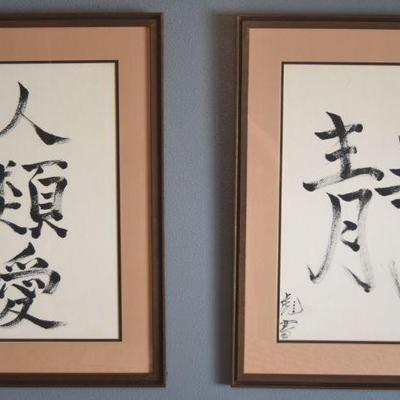 人類愛
静